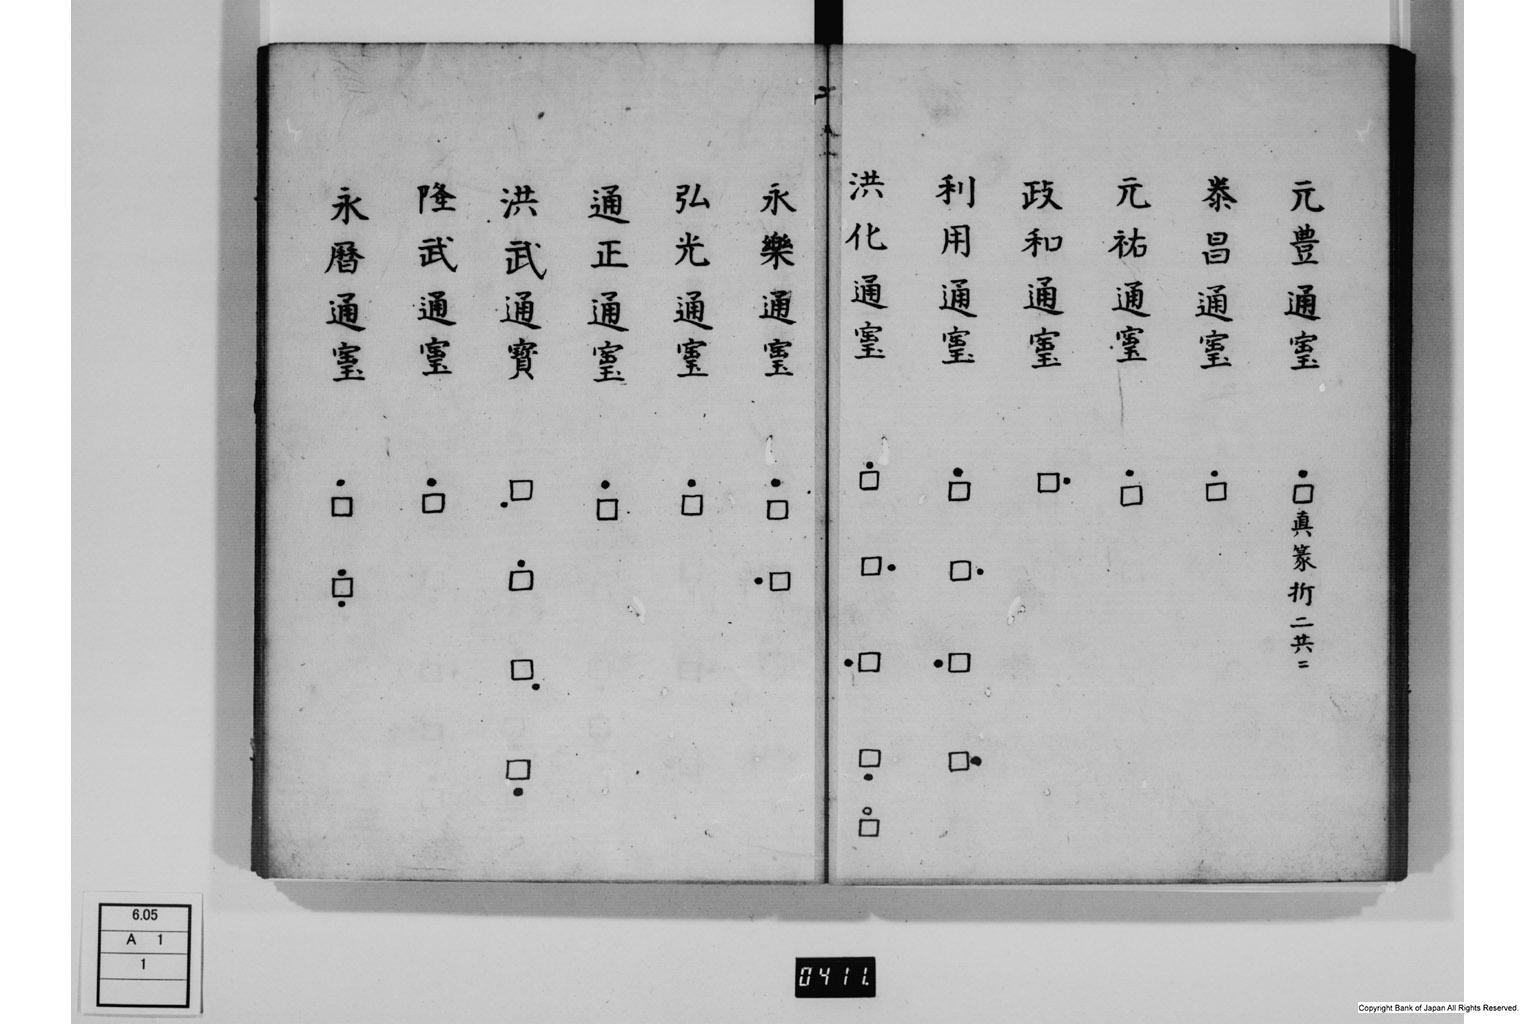 元豊通寳
真篆折二共ニ
泰昌通寳
元祐通寳
政和通寳
利用通寳
洪化通寳
永樂通寳
弘光通寳
通正通寳
洪武通寶
隆武通寳
永曆通寳
6.05
A 1
1
0411.
Copyright Bank of Japan All Rights Reserved.